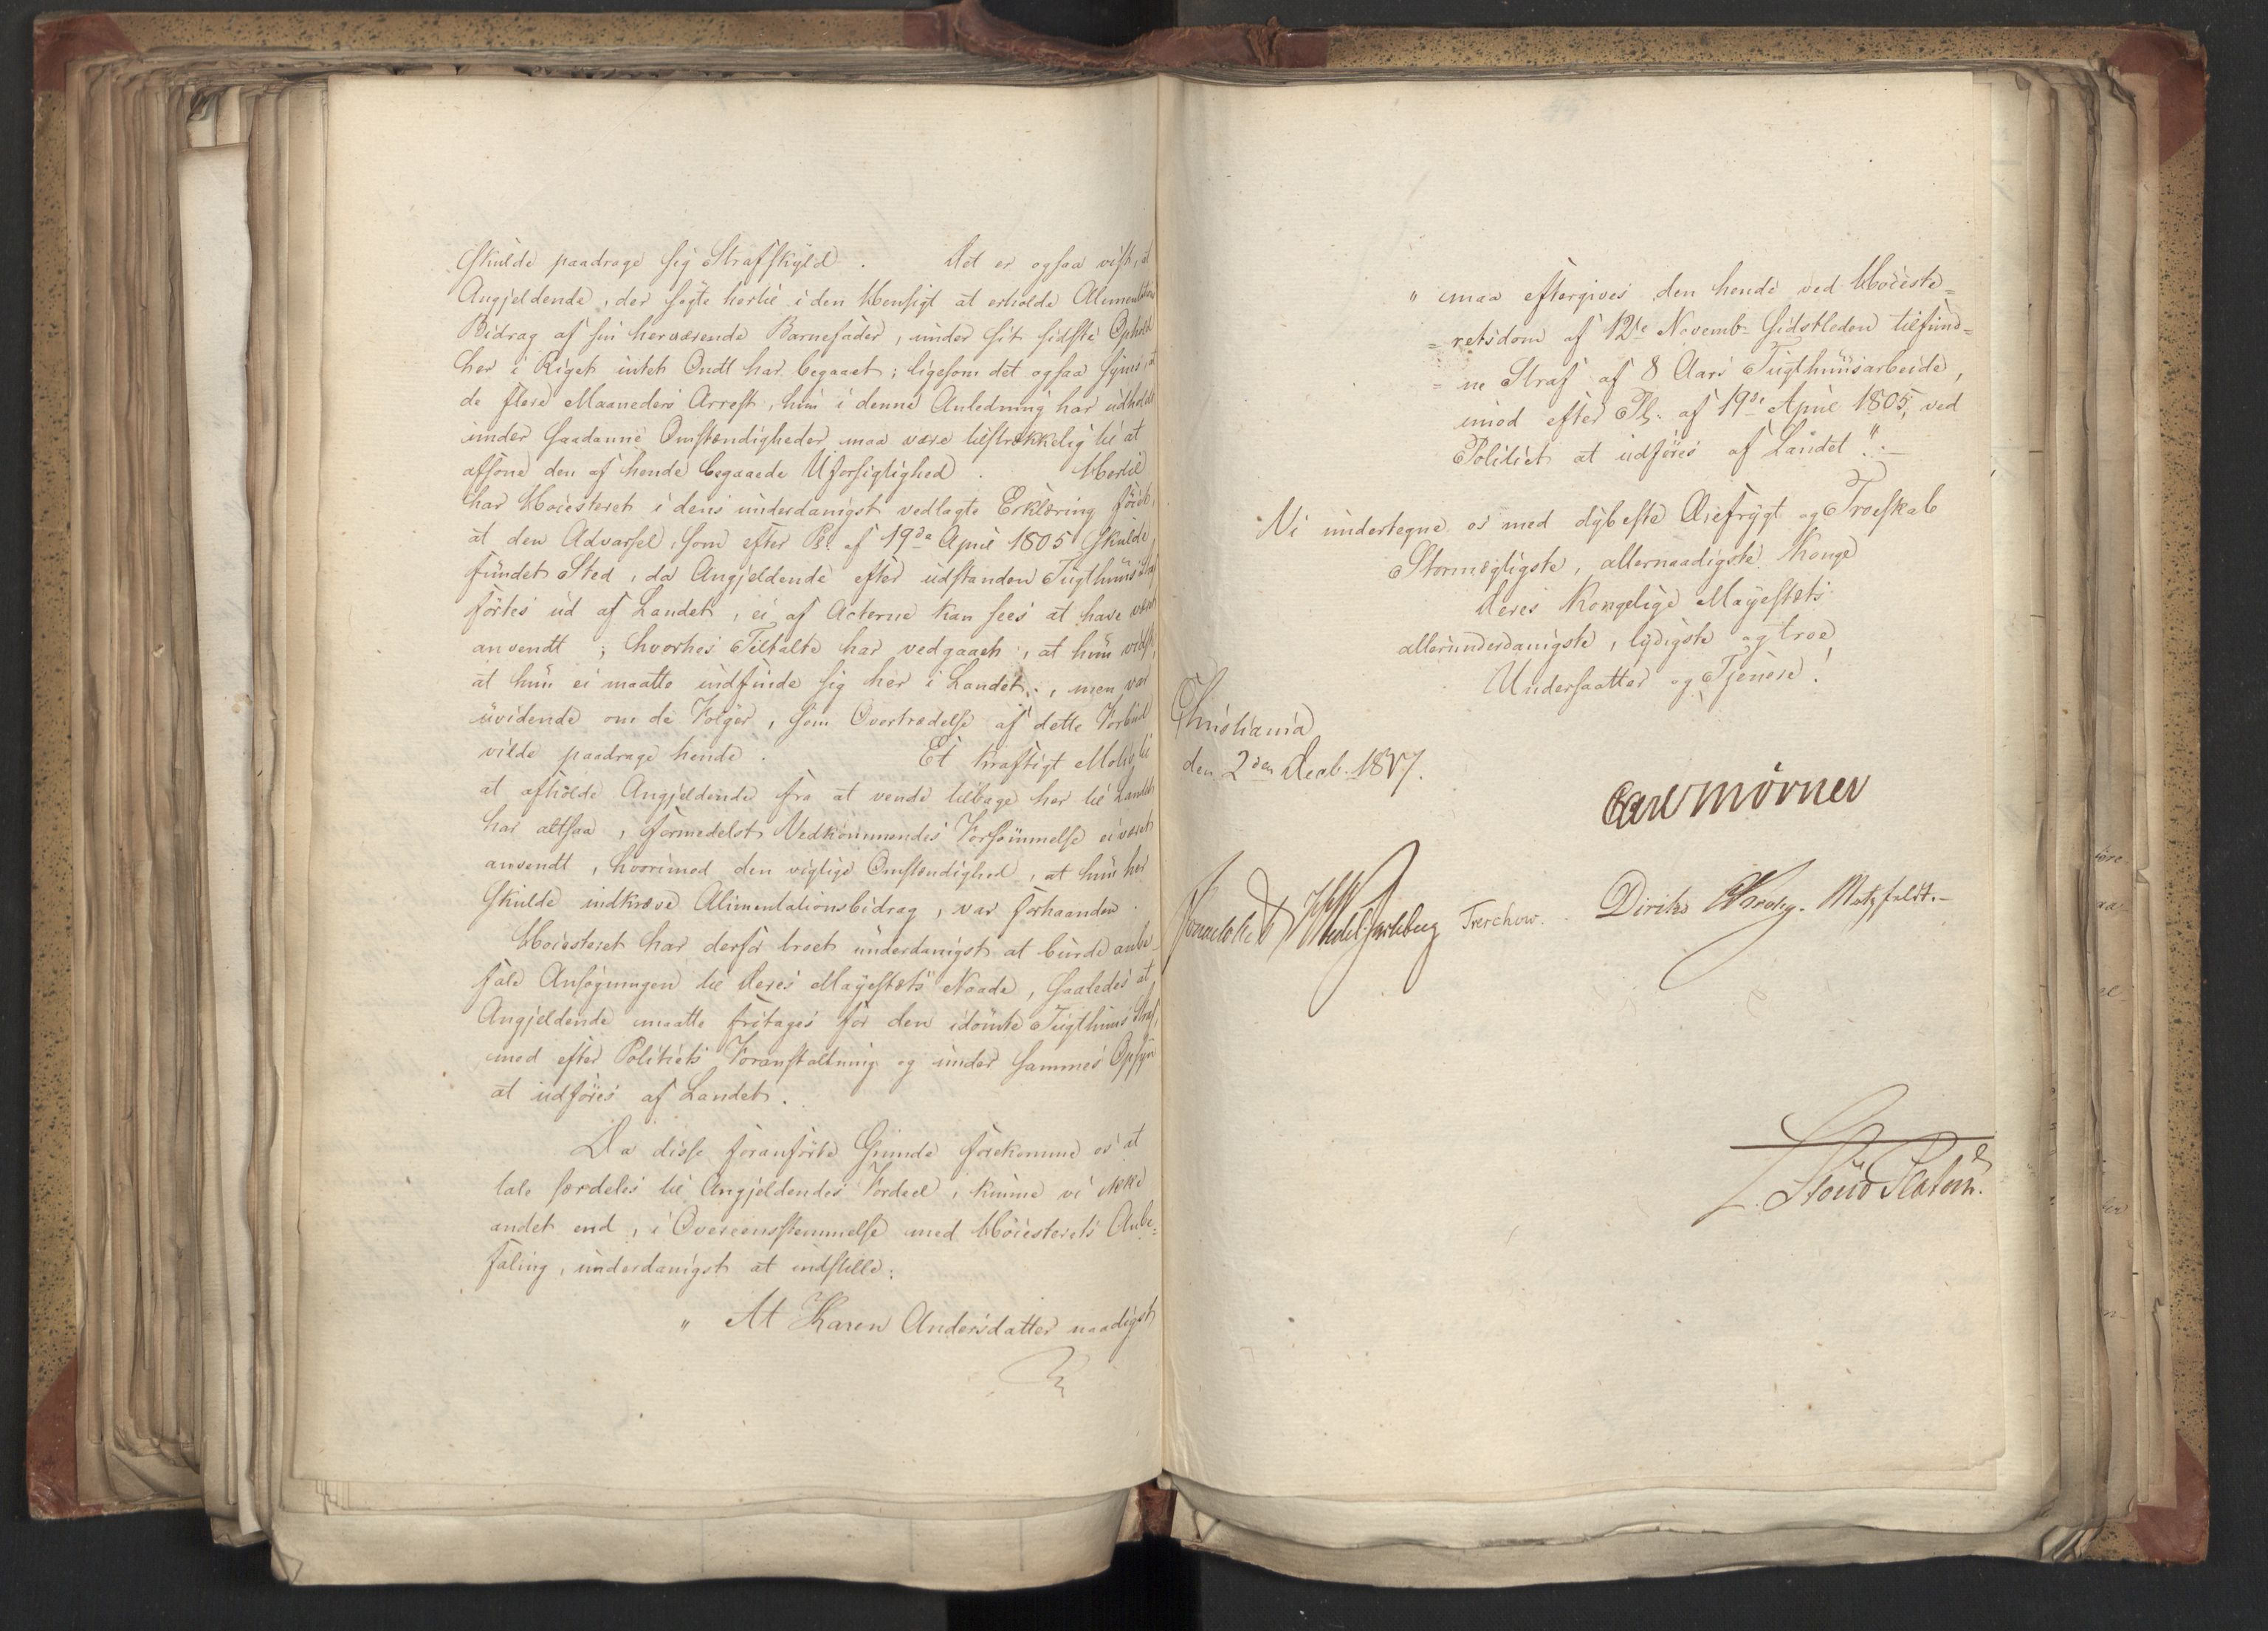 skulde paadrage sig Strafskyld. Det er ogsaa vist, at
Angjeldende, der søgte hertil i den Hensigt at erholde Alimentations
Bidrag af sin herværende Barnefader, under sit sidste Ophold
her i Riget intet Ondt har begaaet; ligesom det ogsaa synes, at
de flere Maaneders Arrest, hun i denne Anledning har udholdt
under saadanne Omstændigheder maa være tilstrækkelig til at
afsone den af hende begaaede Uforsigtighed. Hertil
har Høiesteret i dens underdanigst vedlagte Erklæring føiet,
at den Advarsel, som efter Pl. af 19de April 1805 skulde
fundet Sted, da Angjeldende efter udstanden Tugthuus Straf
førtes ud af Landet, ei af Acterne kan sees at have været
anvendt; hvorhos Tiltalte har vedgaaet, at hun vidste,
at hun ei maatte indfinde sig her i Landet, men var
uvidende om de Følger, som Overtrædelse af dette Forbud
vilde paadrage hende. Et kraftigt Motiv til
at afholde Angjeldende fra at vende tilbage her til Landet
har altsaa, formedelst Vedkommendes Forsømmelse ei været
anvendt, hvorimod den vigtige Omstændighed, at hun her
skulde indkræve Alimentationsbidrag, var forhaanden.
Høiesteret har derfor troet underdanigst at burde anbe-
fale Ansøgningen til Deres Majestæts Naade, saaledes at
Angjeldende maatte fritages for den idømte Tugthuus Straf,
mod efter Politiets Foranstaltning og under sammes Opsyn
at udføres af Landet.
Da disse foranførte Grunde forekomme os at
tale særdeles til Angjeldendes Fordeel, kunne vi ikke
andet end, i Overeensstemmelse med Høiesterets Anbe=
faling, underdanigst at indstille:
" At Karen Andersdatter naadigst
" maa eftergives den hende ved Høieste=
= retsdom af 12te Novemb. sidstleden tilfund=
= ne Straf af 8 Aars Tugthuusarbeide,
imod efter Pl. af 19de April 1805, ved
Politiet at udføres af Landet".
Vi undertegne os med dybeste Ærefrygt og Troeskab
Stormægtigste, allernaadigste Konge
Deres Kongelige Majestæts
allerunderdanigste, lydigste og troe
Undersaatter og Tjenere!
Christiania
den 2den Decb. 1817.
Carl Mörner
Sommelhielm HWedelJarlsberg Treschow. Diriks Krohg. Motzfeldt.
L. Stoud Platou.